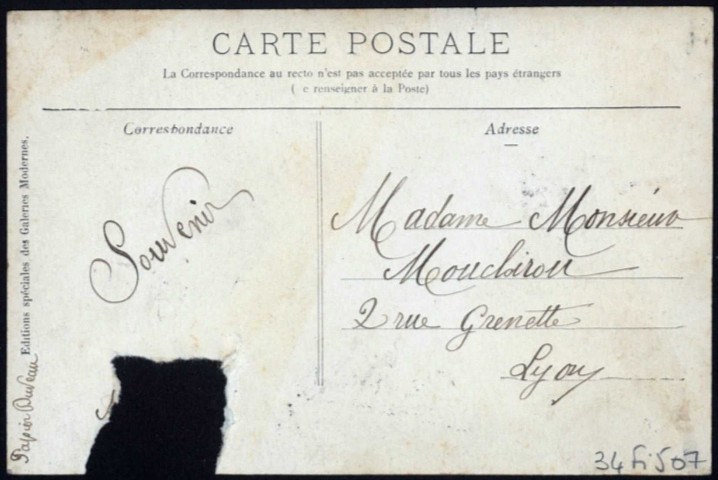 CARTE POSTALE
La Correspondance au recto n'est pas acceptée par tous les pays étrangers
( e renseigner à la Poste)
Correspondance
Adresse
Souvenir
Madame Monsieur
Mouchirou
2 rue Grenette
Lyon
Editions spéciales des Galeries Modernes.
Papier
34 Fi 507